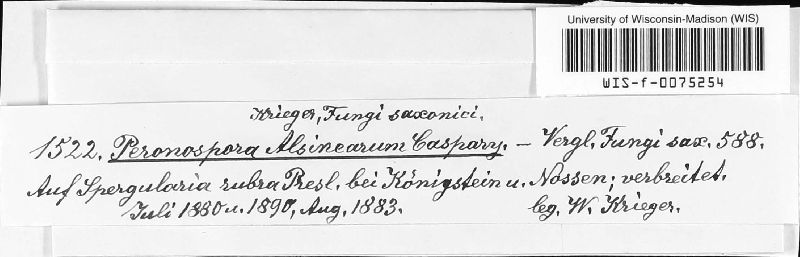 University of Wisconsin-Madison (WIS)
WIS-f-0075254
Krieger, Fungi saxonici.
1522. Peronospora Alsinearum Caspary. — Vergl. Fungi sax. 588.
Auf Spergularia rubra Presl. bei Königstein u. Nossen; verbreitet.
Juli 1880 u. 1890, Aug. 1883.
leg. W. Krieger.